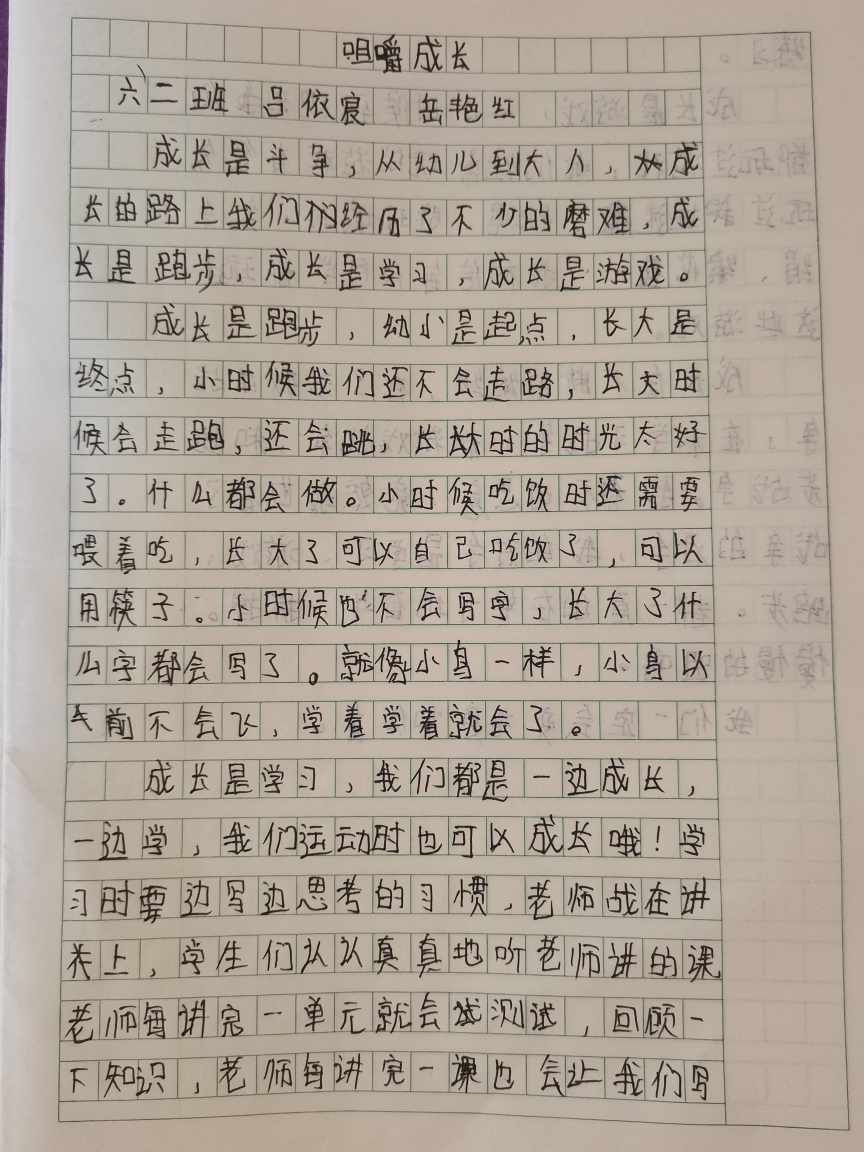 咀嚼成长
六、二班 吕依宸 岳艳红
成长是斗争，从幼儿到大人，成
长的路上我们经历了不少的磨难，成
长是跑步，成长是学习，成长是游戏。
成长是跑步，幼小是起点，长大是
终点，小时候我们还不会走路，长大时
候会走跑，还会跳，长大时的时光太好
了。什么都会做。小时候吃饮时还需要
喂着吃，长大了可以自己吃饮了，可以
用筷子。小时候也不会写字，长大了什
么字都会写了。就像小鸟一样，小鸟以
前不会飞，学着学着就会了。
成长是学习，我们都是一边成长，
一边学，我们运动时也可以成长哦！学
习时要边写边思考的习惯，老师战在讲
上，学生们认认真真地听老师讲的课
老师每讲完一单元就会测试，回顾一
下知识，老师每讲完一课也会让我们写